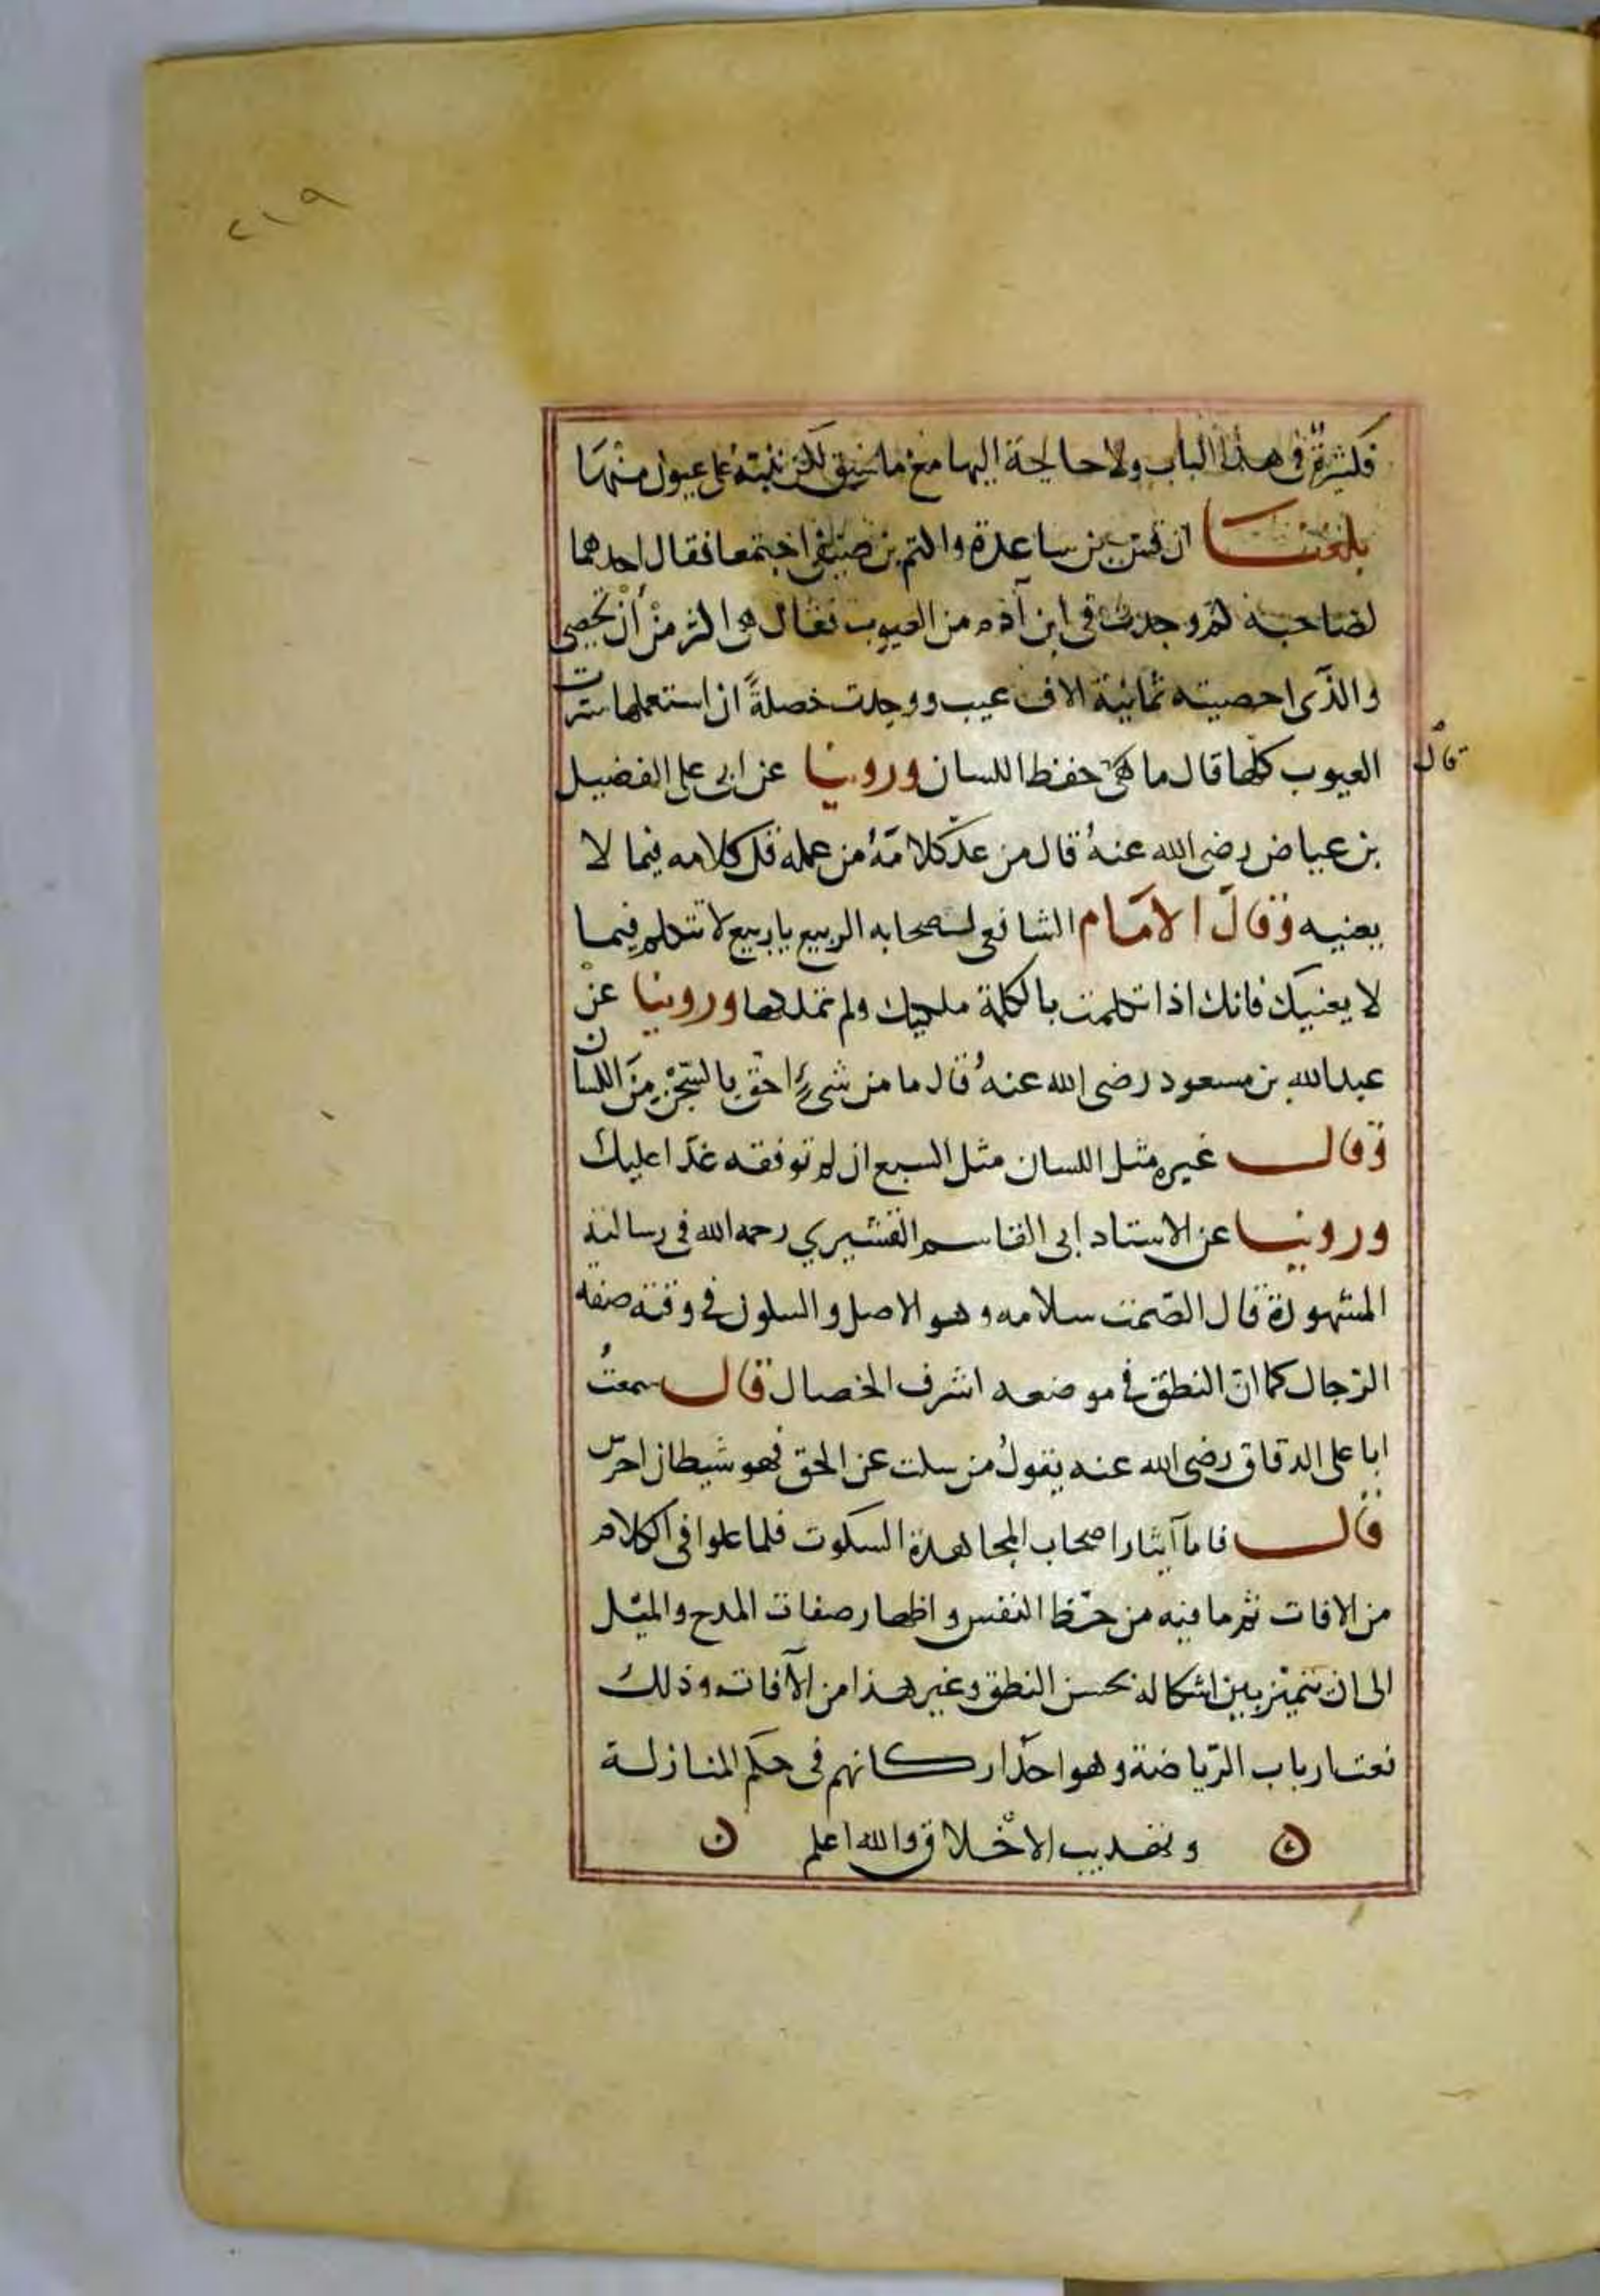 ٢١٩
فكثيرة في هذا الباب ولا حاجة اليها مع ما سبق لكن ننبه على عيون منها
بلغنا ان قس بن ساعدة واكثم بن صيفي اجتمعا فقال احدهما
لصاحبه كم وجدت في ابن آدم من العيوب فقال هي اكثر من أن تحصى
والذي احصيته ثمانية الاف عيب ووجدت خصلةً ان استعملها سترت
العيوب كلها قال ما هي حفظ اللسان وروينا عن ابي علي الفضيل
قال
بن عياض رضي الله عنهُ قال من عدّ كلامَهُ من عمله قل كلامه فيما لا
يعنيه وقال الامام الشافعي لصحابه الربيع يا ربيع لا تتكلم فيما
لا يعنيك فانك اذا تكلمت بالكلمة ملكتك ولم تملكها وروينا عن
عبدالله بن مسعود رضى الله عنهُ قال ما من شيءٍ احق بالسّجن من اللسان
وقال غيره مثل اللسان مثل السبع ان لم توفقه عدا عليك
وروينا عن الاستاد ابى القاسم القشيري رحمه الله في رسالته
المشهورة قال الصّمت سلامه وهو الاصل والسكون في وقته صفه
الرّجال كما انّ النطق في موضعه اشرف الخصال قال سمعتُ
ابا علي الدقاق رضى الله عنه يقولُ من سكت عن الحق فهو شيطان اخرس
قال فاما آيثار اصحاب المجاهدة السكوت فلما علموا في الكلام
من الافات ثم ما فيه من حظ النفس واظهار صفات المدح والميل
الى ان يتميّز بين اشكاله بحسن النطق وغير هذا من الآفات وذلك
نعت ارباب الرّياضة وهو احد اركانهم في حكم المنازلة
وتهذيب الاخلاق والله اعلم